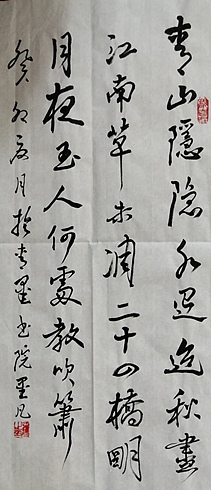 青山隱隐水迢迢秋盡
江南草未凋二十四橋明
月夜玉人何處教吹簫
癸卯夏月於青墨书院墨凡